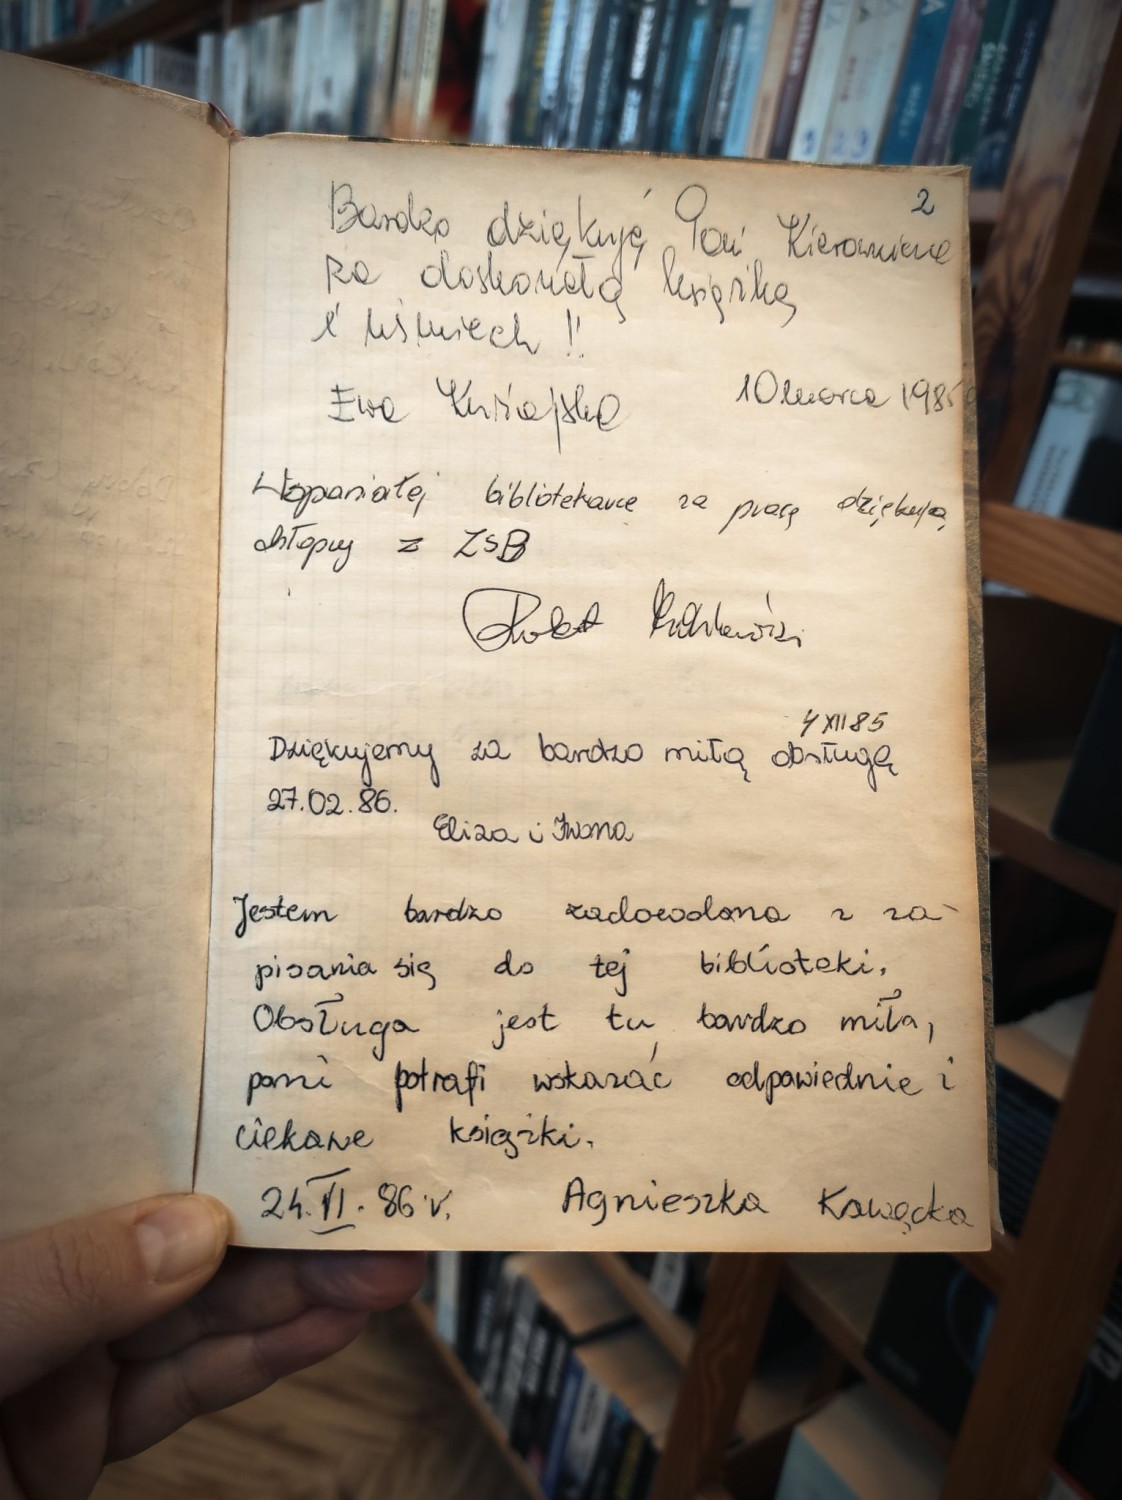 2
Bardzo dziękuję Pani Kierowniczce
za doskonałą książkę
i uśmiech !!
Ewa
10 marca 1985
Wspaniałej bibliotekarce za pracę dziękują
chłopcy z ZSB
Robert
4 XII 85
Dziękujemy za bardzo miłą obsługę
27.02.86.
Eliza i Iwona
Jestem bardzo zadowolona z za-
pisania się do tej biblioteki.
Obsługa jest tu bardzo miła,
pani potrafi wskazać odpowiednie i
ciekawe książki.
24.VI.86 r. Agnieszka Kawęcka